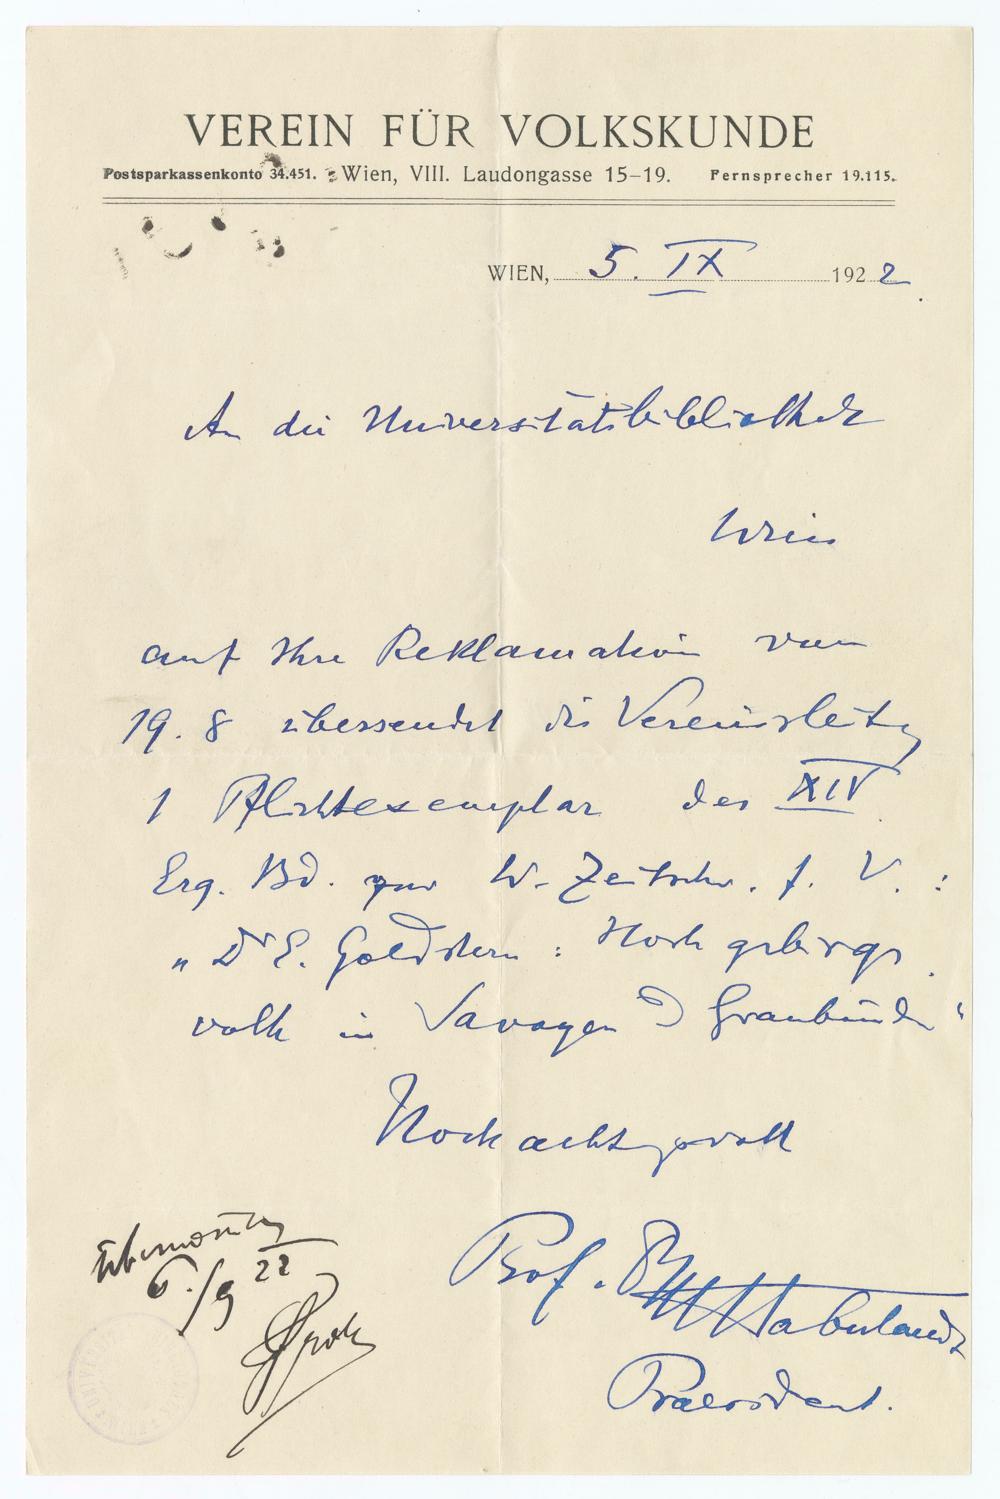 VEREIN FÜR VOLKSKUNDE
Postsparkassenkonto 34.451. Wien, VIII. Laudongasse 15–19. Fernsprecher 19.115.
WIEN, 5. IX 1922
An die Universitätsbibliothek
Wien
auf Ihre Reklamation vom
19. 8 übersendet die Vereinsleitg
1 Pflichtexemplar des XIV.
Erg. Bd. zur W. Zeitschr. f. V. :
„Dr E. Goldstern : Hochgebirgs
volk in Savoyen u Graubünden“
Hochachtungsvoll
Prof. Dr M Haberlandt
Praesident.
6./9 22